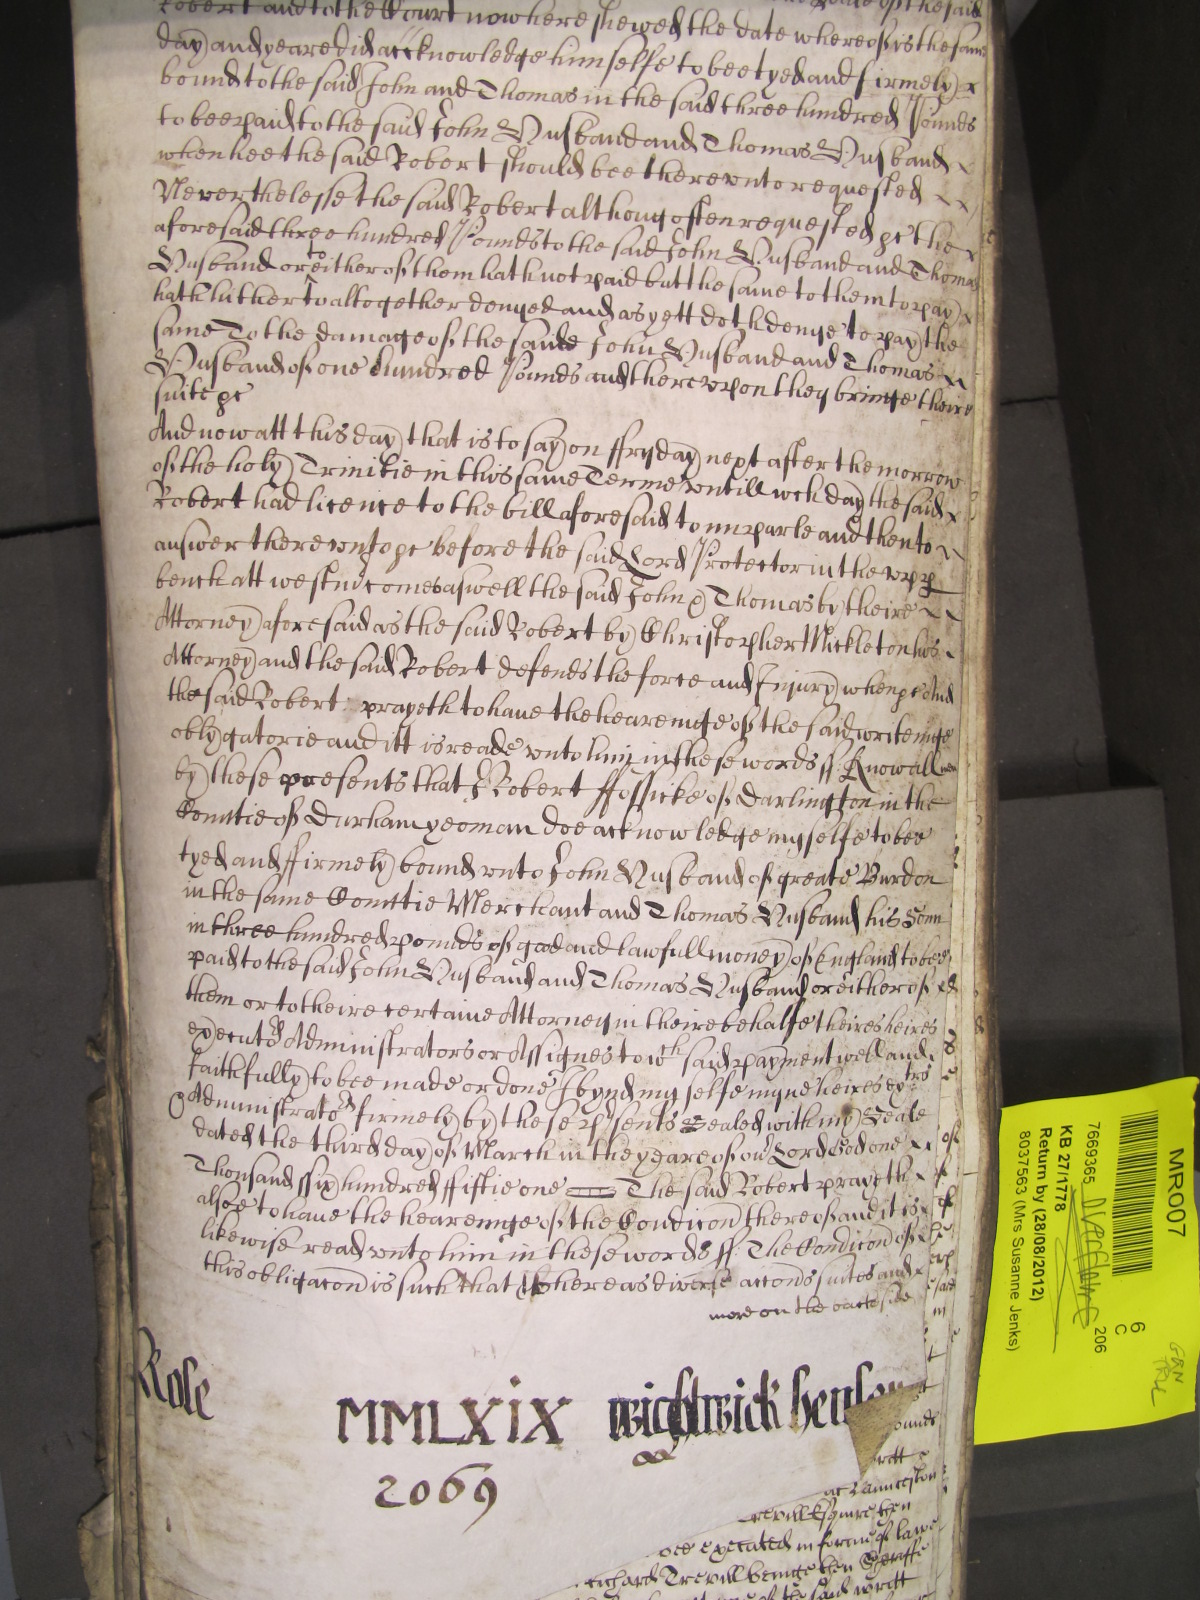 Robert and to the Court now here shewed the date whereof is the same
day and yeare did acknowledge himselfe to bee tyed and firmely x
bound to the said John and Thomas in the said three hundred Pounds
to bee paid to the said John Husband and Thomas Husband x
when hee the said Robert should bee thereunto requested x x
Neverthelesse the said Robert althoug often requested &c the x
aforesaid three hundred Pounds to the said John Husband and Thomas
Husband or to either of them hath not paid butt the same to them to pay x
hath hitherto altogether denyed and as yett doth denye to pay the
same To the damage of the saide John Husband and Thomas x
Husband of one hundred Pounds and thereupon they bringe theire
suite &c
And now att this day that is to say on ffryday next after the morrow
of the holy Trinitie in this same Terme untill wch day the said x
Robert had licence to the bill aforesaid to imparle and then to x
answer thereunto &c before the said Lord Protector in the upp
bench att westm comes aswell the said John & Thomas by theire x
Attorney aforesaid as the said Robert by Christopher Mickleton his x
Attorney and the said Robert defends the force and Injury when &c And
the said Robert prayeth to have the heareinge of the said writeinge
oblygatorie and itt is reade unto him in these words ss Know all men
by these presents that I Robert ffossicke of Darlington in the
Countie of Durham yeoman doe acknowledge my selfe to bee
tyed and ffirmely bound unto John Husband of greate Burdon
in the same Countie Merchant and Thomas Husband his Sonn
in three hundred pounds of good and lawfull money of England to bee
paid to the said John Husband and Thomas Husband or either of
them or to theire certaine Attorney in theire behalfe theires heires
executrs Administrators or Assignes to wch said payment well and
faithfully to bee made or done I bynd my selfe myne heires extrs
Administratrs firmely by these psents Sealed with my Seale
dated the third day of March in the yeare of our Lord God one x
Thousand six hundred ffiftie one The said Robert prayeth x
alsoe to have the heareinge of the Condicon thereof and it is
likewise read unto him in these words ss The Condicon of
this obligacon is such that Whereas diverse accons suites and
more on the backside
Role
MMLXIX wightwick hen
2069
ounds
writt
at Launceston
revill Esquire then
bee executed in forme of lawe
richard Trevill beinge then Sheriffe
of the said writt
MR007
6
C
7669365
206
KB 27/1778
Return by (28/08/2012)
8037563 (Mrs Susanne Jenks)